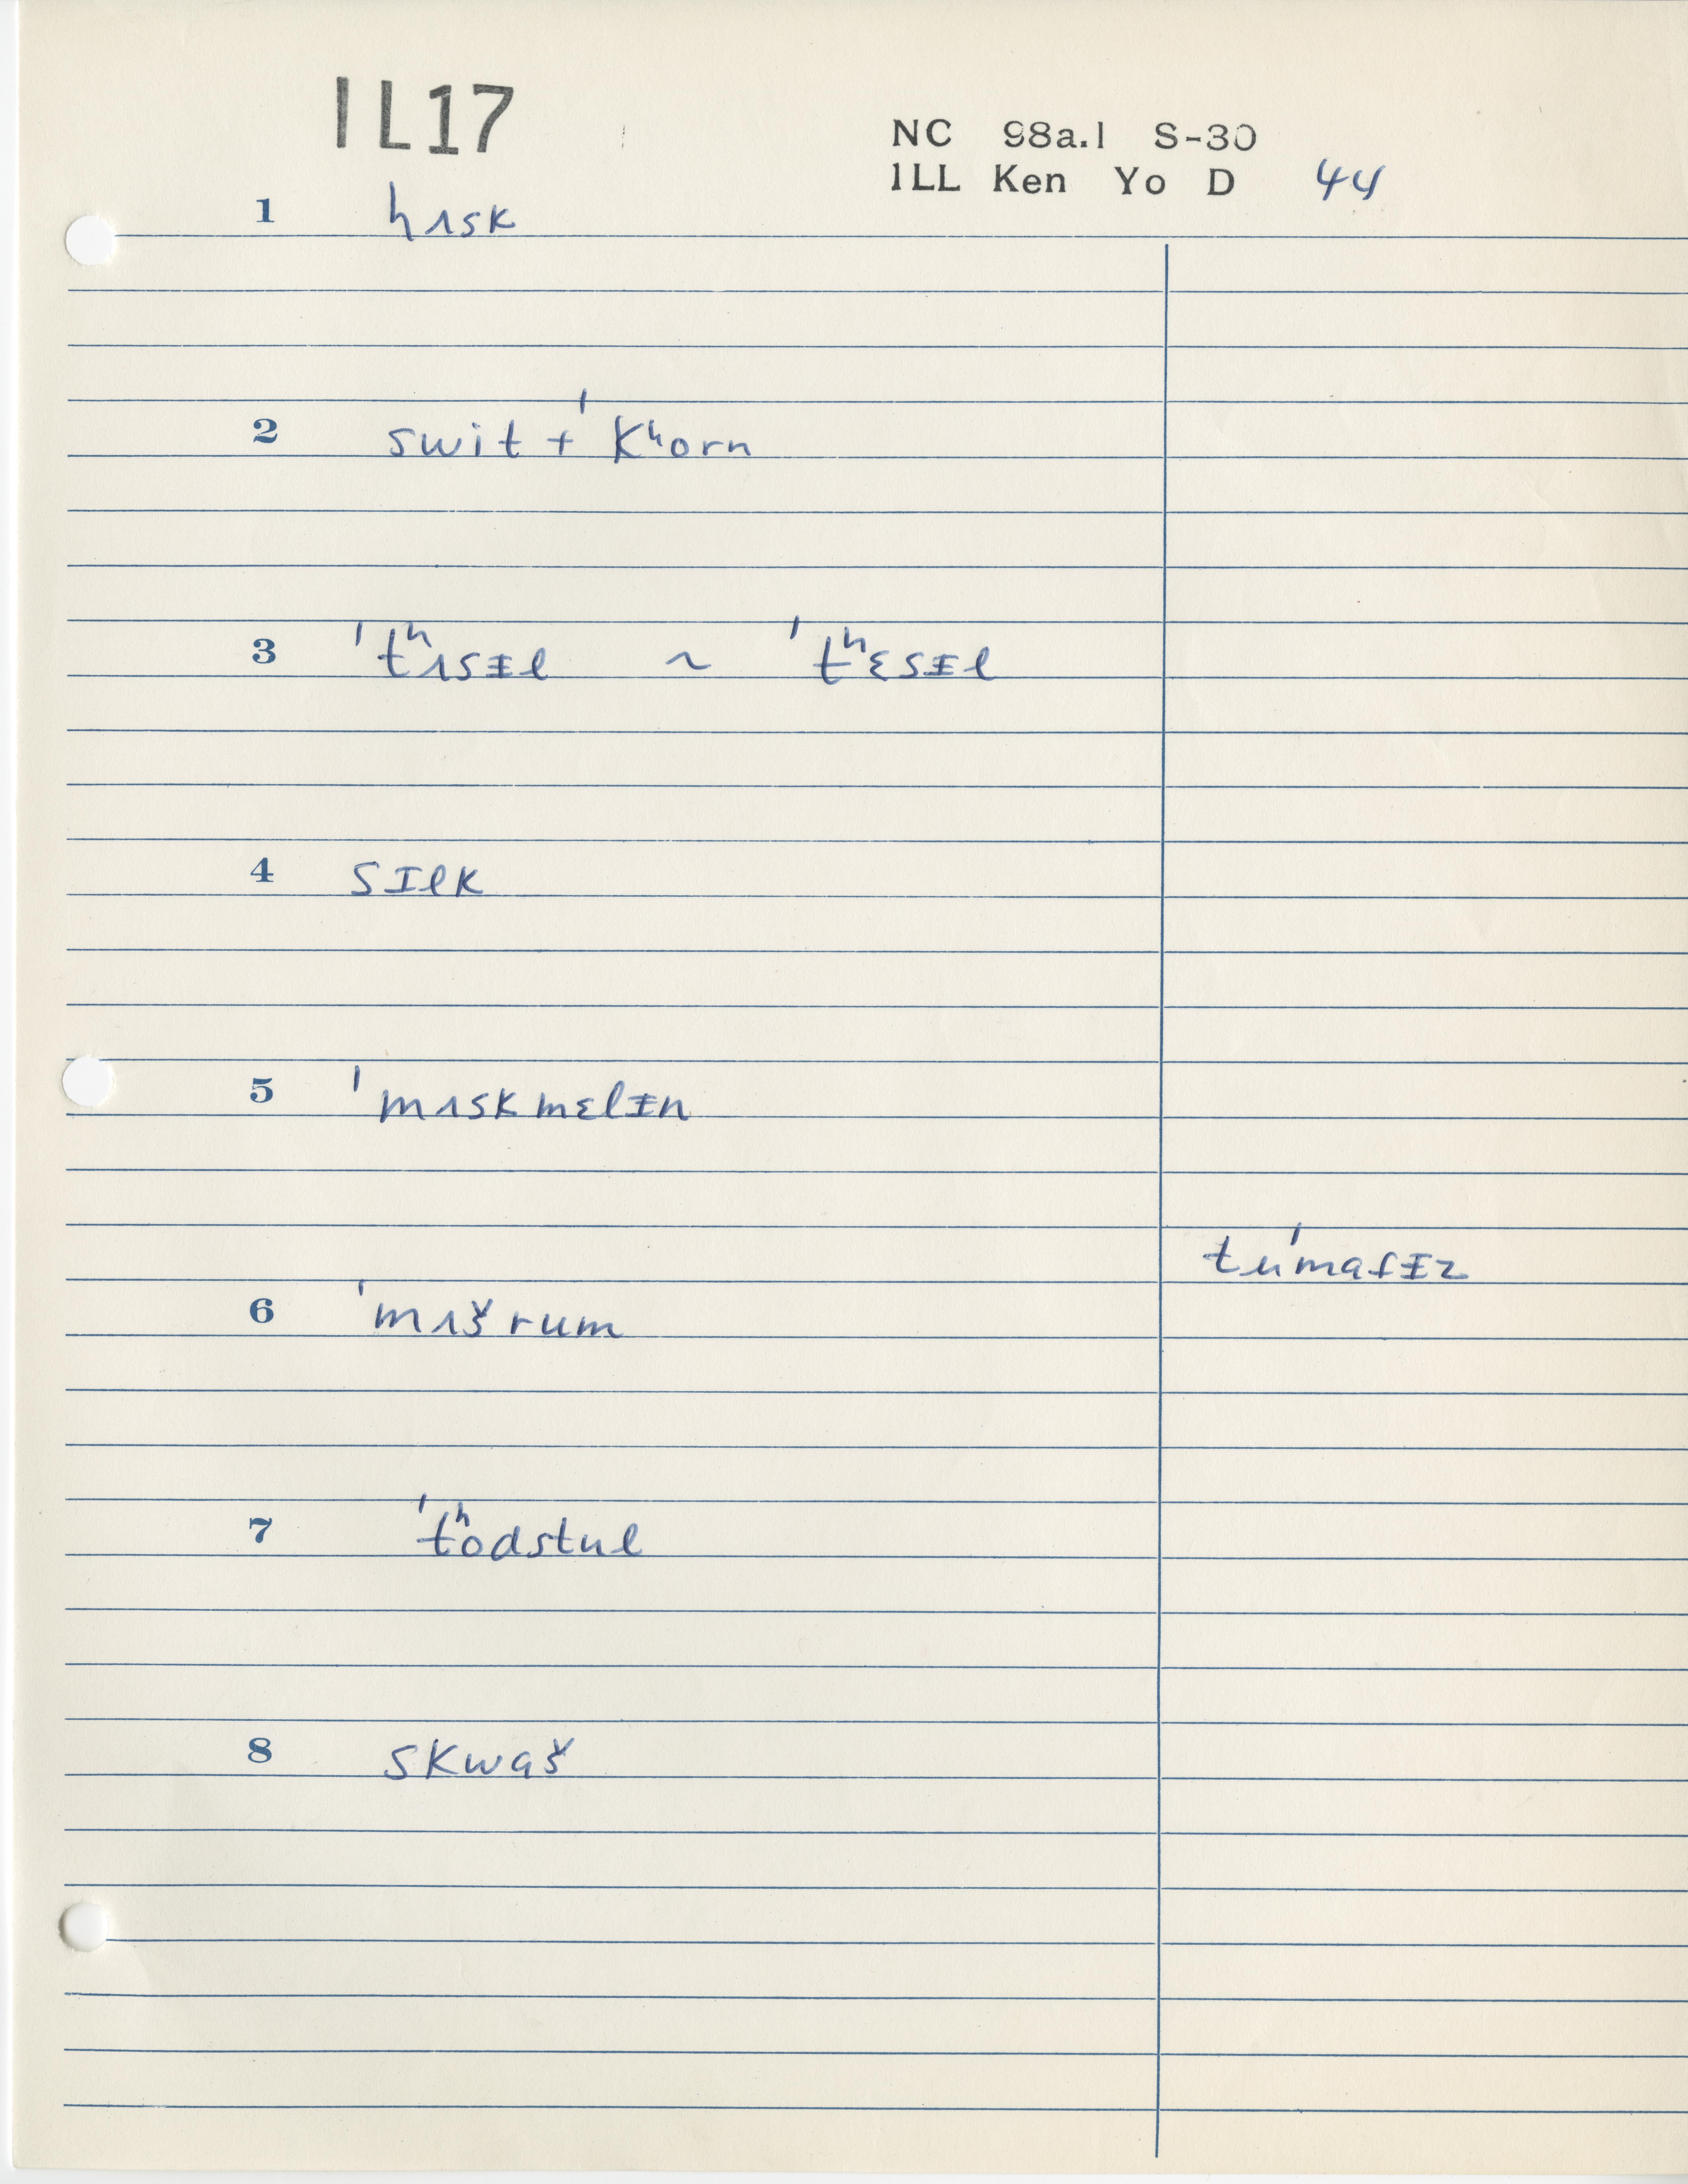 IL17
NC 98a.1 S-30
ILL Ken Yo D 44
1 hʌsk
2 swit + ˈkʰorn
3 ˈtʰʌsᵻl ~ ˈtʰɛsᵻl
4 sɪlk
5 ˈmʌskmɛlᵻn
tuˈmatᵻz
6 ˈmʌšrum
7 ˈtʰodstul
8 skwaš